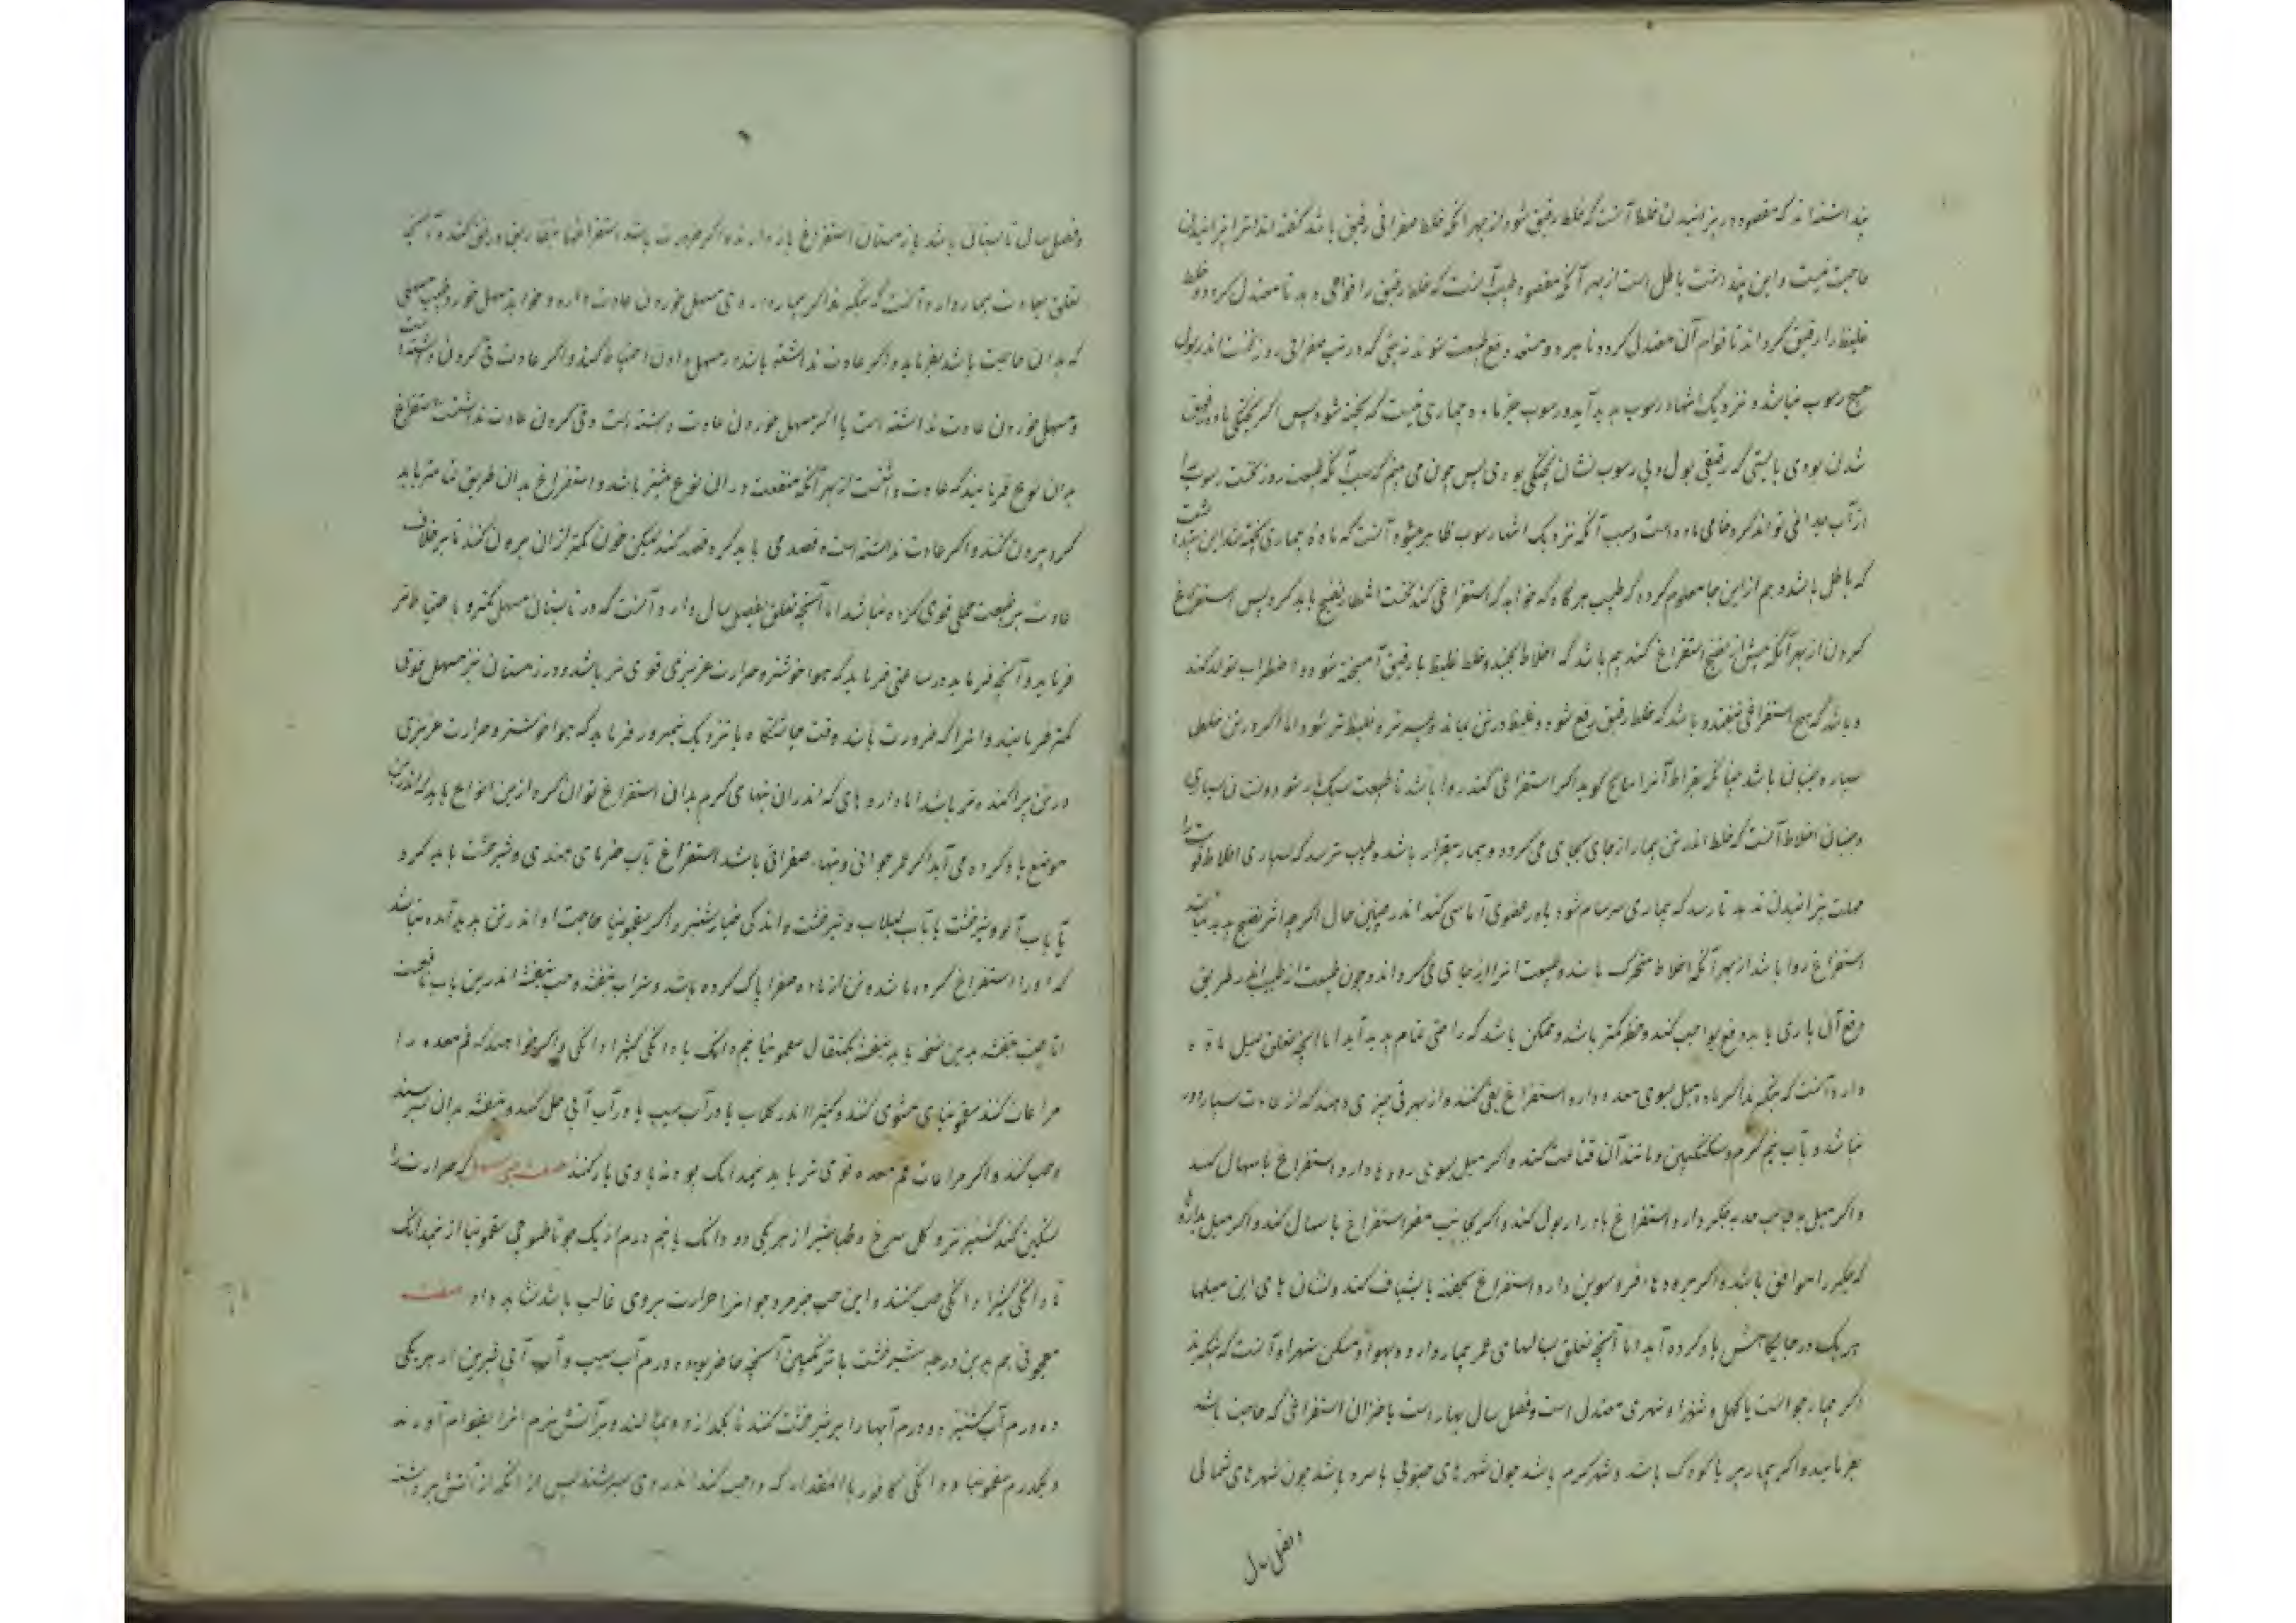 پنداشته‌اند که مقصود در پزانیدن خلط آنست که خلط رقیق شود از بهر آنکه خلط صفرائی رقیق باشد گفته‌اند او را پزانیدن
حاجت نیست و این پنداشت باطل است از بهر آنکه مقصود طبیب آنست که خلط رقیق را قوامی دهد تا معتدل گردد و خلط
غلیظ را رقیق گرداند تا قوام آن معتدل گردد تا هر دو مستعد دفع طبیعت شوند نه بینی که در تب صفرائی روز نخست اندر بول
هیچ رسوب نباشد و نزدیک انتها رسوب پدید آید و رسوب جز ماده بیماری نیست که پخته شود پس اگر پختگی ماده رقیق
شدن بودی بایستی که رقیقی بول و بی رسوب نشان پختگی بودی پس چون می بینم که سبب آنکه طبیعت روز نخست رسوب را
از آب جدا نمی تواند کرد خامی ماده است و سبب آنکه نزدیک انتها رسوب ظاهر میشود آنست که ماده بیماری پخته شد این پنداشت
که باطل باشد و هم از این جا معلوم گردد که طبیب هرگاه که خواهد که استفراغی کند نخست انتظار نضج باید کرد پس استفراغ
کردن از بهر آنکه پیش از نضج استفراغ کنند بیم باشد که اخلاط بجنبد و خلط غلیظ با رقیق آمیخته شود و اضطراب تولد کند
و باشد که هیچ استفراغی نیفتد و باشد که خلط رقیق دفع شود و غلیظ در تن بماند و بدتر و غلیظ تر شود اما اگر در تن خلط
بسیار و جنبان باشد چنانکه بقراط آنرا هایج گوید اگر استفراغی کنند روا باشد تا طبیعت سبکبار شود و نشان بسیاری
و جنبانی اخلاط آنست که خلط اندر تن بیمار از جای بجای می گردد و بیمار بیقرار باشد و طبیب ترسد که بسیاری اخلاط قوت را
مهلت پزانیدن ندهد تا رسد که بیماری سرسام شود یا در عضوی آماسی کند اندر چنین حال اگرچه اثر نضج پدید نباشد
استفراغ روا باشد از بهر آنکه اخلاط متحرک باشد و طبیعت آنرا از جای می گرداند و چون طبیعت از طبیب بر طریق
دفع آن یاری یابد دفع بواجب کند و خطر کمتر باشد و ممکن باشد که راحتی تمام پدید آید اما آنچه تعلق بمیل ماده
دارد آنست که بنگرند اگر ماده میل بسوی معده دارد استفراغ بقی کنند و از بهر قی چیزی دهند که از عادت بسیار دور
نباشد و بآب نیم گرم و سکنگبین و مانند آن قناعت کنند و اگر میل بسوی روده‌ها دارد استفراغ باسهال کنند
و اگر میل بجانب حدبه جگر دارد استفراغ بادرار بول کند و اگر بجانب مقعر استفراغ باسهال کند و اگر میل بدان
که جگر را موافق باشد و اگر مره دها، فروسوین دارد استفراغ بحقنه یا بشیاف کنند و نشان های این میلها
هر یک در جایگاهش یاد کرده آید اما آنچه تعلق بسالهای عمر بیمار دارد و بهوا و مسکن شهر او آنست که بنگرند
اگر بیمار جوانست یا کهل و شهر او شهری معتدل است و فصل سال بهار است یا خزان استفراغی که حاجت باشد
بفرمایند و اگر بیمار پیر یا کودک باشد و شهر گرم باشد چون شهرهای جنوبی یا سرد باشد چون شهرهای شمالی
و فصل سال
و فصل سال تابستان باشد یا زمستان استفراغ باز دارند و اگر ضرورت باشد استفراغها بتفاریق و رفق کنند و آنچه
تعلق بعادت بیمار دارد آنست که بنگرند اگر بیمار داروی مسهل خوردن عادت دارد و خواهد مسهل خورد طبیب مسهلی
که بدان حاجت باشد بفرماید و اگر عادت نداشته باشد در مسهل دادن احتیاط کند و اگر عادت قی کردن داشته است
و مسهل خوردن عادت نداشته است یا اگر مسهل خوردن عادت داشته است و قی کردن عادت نداشت استفراغ
بدان نوع فرمایند که عادت داشت از بهر آنکه منفعت در آن نوع بیشتر باشد و استفراغ بدان طریق تمامتر باید
کرد بیرون کنند و اگر عادت نداشته است و فصد می باید کرد فصد کنند لیکن خون کمتر از آن بیرون کنند تا برخلاف
عادت بر طبیعت حملی قوی کرده نباشد اما آنچه تعلق بفصل سال دارد آنست که در تابستان مسهل کمتر و باحتیاط تر
فرماید و آنچه فرماید در ساعتی فرماید که هوا خوشتر و حرارت غریزی قوی تر باشد و در زمستان نیز مسهل قوی
کمتر فرمایند و آنرا که ضرورت باشد وقت چاشتگاه یا نزدیک نیمروز فرماید که هوا خوشتر و حرارت غریزی
در تن پراکنده تر باشد اما داروهای که اندر آن تبهای گرم بدان استفراغ توان کرد ازین انواع باید که اندرین
موضع یاد کرده می آید اگر عمر جوانی و تبها، صفرائی باشد استفراغ بآب خرمای هندی و شیرخشت باید کرد
یا بآب آلو و شیرخشت یا بآب لبلاب و شیرخشت و اندکی خیارشنبر و اگر سقمونیا حاجت او اندر تن پدید آمده نباشد
که او را استفراغ کرده باشد و تن از ماده صفرا پاک کرده باشد و شراب بنفشه و حب بنفشه اندرین باب نافعست
اما حب بنفشه بدین نسخه باید بنفشه یکمثقال سقمونیا نیم دانگ یا دانگی کتیرا دانگی و اگر خواهند که فم معده را
مراعات کنند سقمونیای مشوی کنند و کتیرا اندر گلاب یا در آب سیب یا در آب آبی حل کنند و بنفشه بدان بسرشند
و حب کنند و اگر مراعات فم معده قوی تر باید نیمدانگ پودنه با وی یار کنند صفت حبی که حرارت را
تسکین کند کشنیز تر و گل سرخ و طباشیر از هر یکی دو دانگ یا نیم درم از یک جو تا طسوجی سقمونیا از نیمدانگ
تا دانگی کتیرا دانگی حب کنند و این حب جز مرد جوانرا حرارت بر وی غالب باشد نشاید داد صفت
معجونی هم بدین درجه شیرخشت یا ترنگبین آنچه حاضر بود ده درم آب سیب و آب آبی شیرین از هر یکی
ده درم آب کشنیز ده درم آبها را بر شیرخشت کنند تا بگدازد و بپالند و بر آتش نرم آنرا بقوام آورند
و یکدرم سقمونیا و دانگی کافور یا المقدار که واجب کند اندر وی سرشند پس از آنکه از آتش برداشته